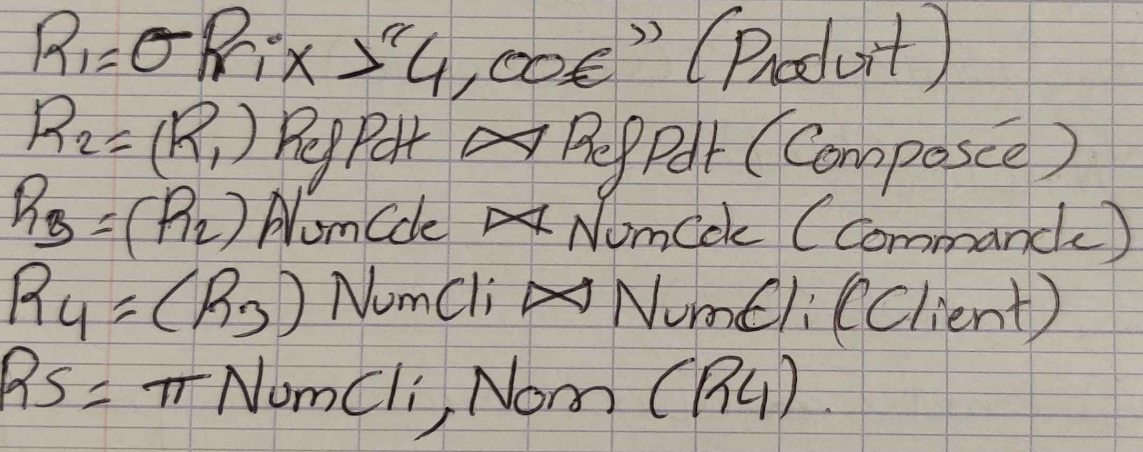 R1= σ Prix > "4,00€" (Produit)
R2= (R1) RefPdt ⋈ RefPdt (Composée)
R3 = (R2) NumCde ⋈ NumCde (Commande)
R4 = (R3) NumCli ⋈ NumCli (Client)
R5= π NumCli, Nom (R4).